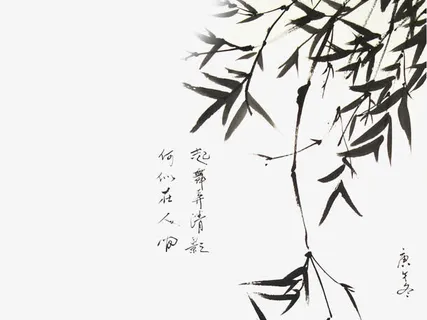 起舞弄清影
何似在人间
庚
冬